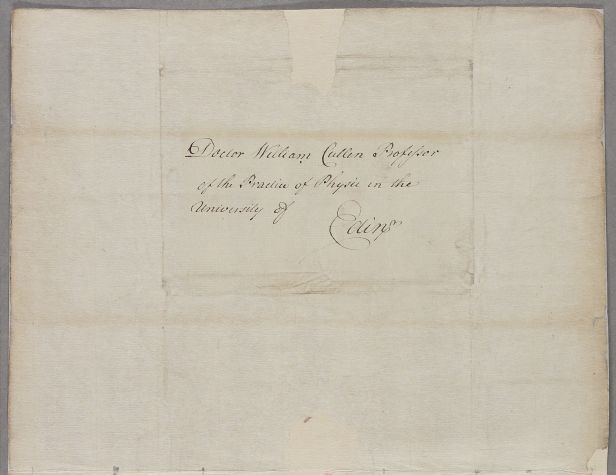 Doctor William Cullen Professor
of the Practice of Physic in the
University of Edinr